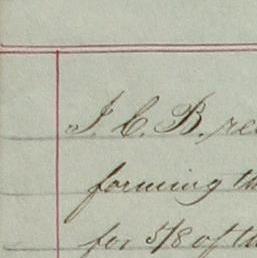 J. C. B. rec
forming th
for 5/8 of th